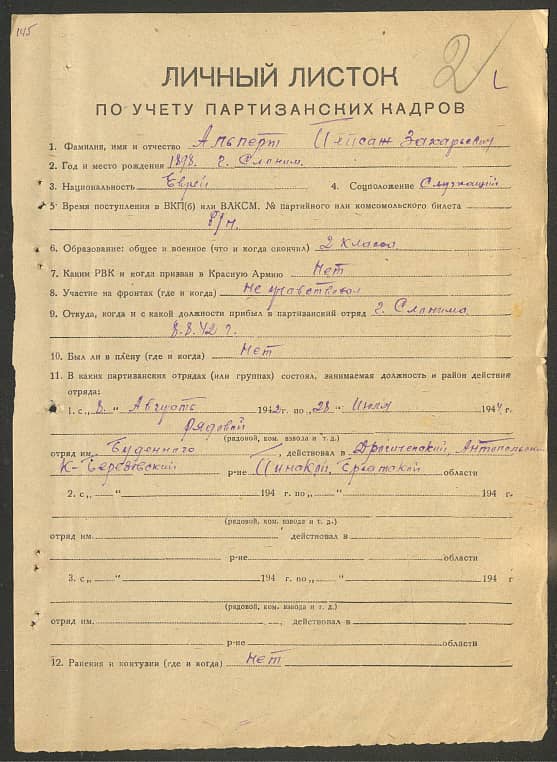 145
2
ЛИЧНЫЙ ЛИСТОК
ПО УЧЕТУ ПАРТИЗАНСКИХ КАДРОВ
1. Фамилия, имя и отчество Альперт Захарьевич
2. Год и место рождения 1898. г. Слоним.
3. Национальность Еврей 4. Соцположение Служащий
5 Время поступления в ВКП(б) или ВЛКСМ, № партийного или комсомольского билета
б/п.
6. Образование: общее и военное (что и когда окончил) 2 класса
7. Каким РВК и когда призван в Красную Армию Нет
8. Участие на фронтах (где и когда) не участвовал
9. Откуда, когда и с какой должности прибыл в партизанский отряд г. Слонима
8.8.42 г.
10. Был ли в плену (где и когда) Нет
11. В каких партизанских отрядах (или группах) состоял, занимаемая должность и район действия
отряда:
1. с „ 8 “ Августа 1942г. по „28“ Июля 1944г.
рядовой
(рядовой, ком. взвода и т. д.)
отряд им. Буденного, действовал в Дрогиченский, Антопольский
К-Березовский р-не Пинской, Брестской области
2. с „ “ 194 г. по „ “ 194 г.
(рядовой, ком. взвода и т. д.)
отряд им. действовал в
р-не области
3. с „ “ 194 г. по „ “ 194 г
(рядовой, ком. взвода и т. д.)
отряд им. , действовал в
р-не области
12. Ранения и контузии (где и когда) нет